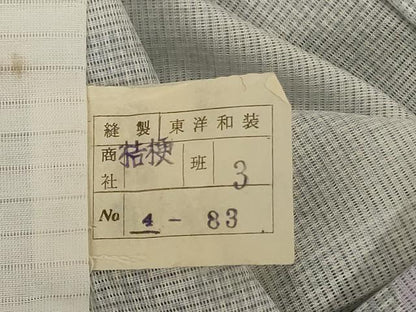 縫製 東洋和装
商社 桔梗 班 3
No 4 - 83